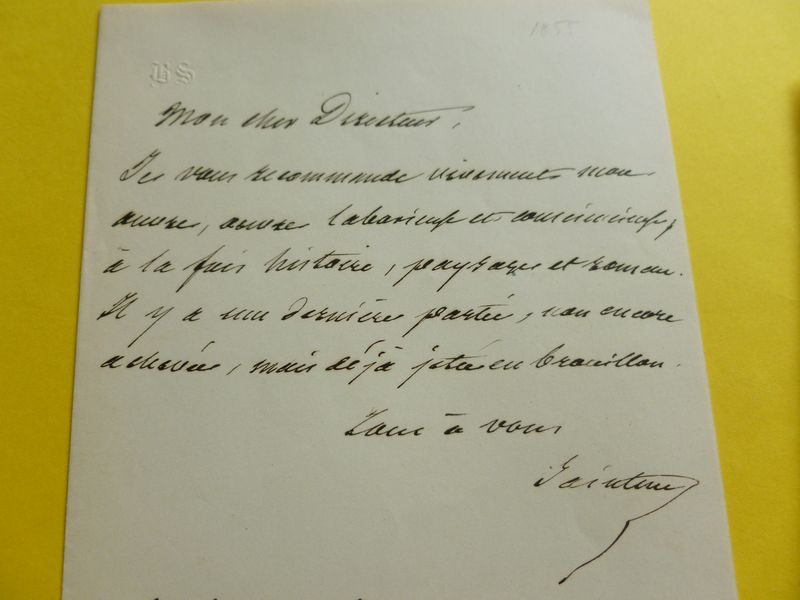 1855
BS
Mon cher Directeur,
Je vous recommande vivement mon
œuvre, œuvre laborieuse et consciencieuse,
à la fois histoire, paysage et roman.
Il y a une dernière partie, non encore
achevée, mais déjà jetée en brouillon.
Tout à vous
Saintine